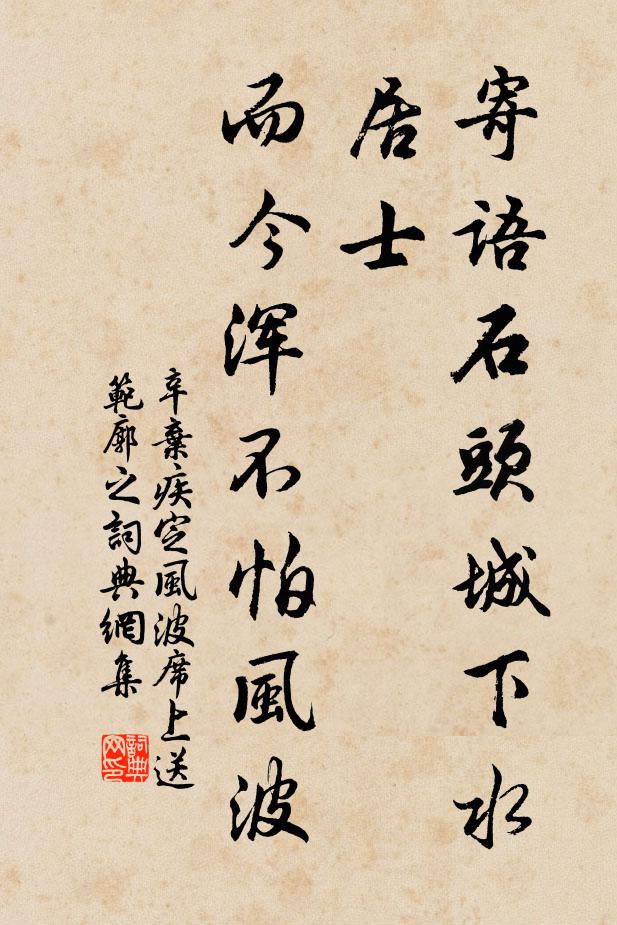 寄语石頭城下水
居士
而今浑不怕風波
辛棄疾定風波席上送
範廓之詞典網集
詞典
网印